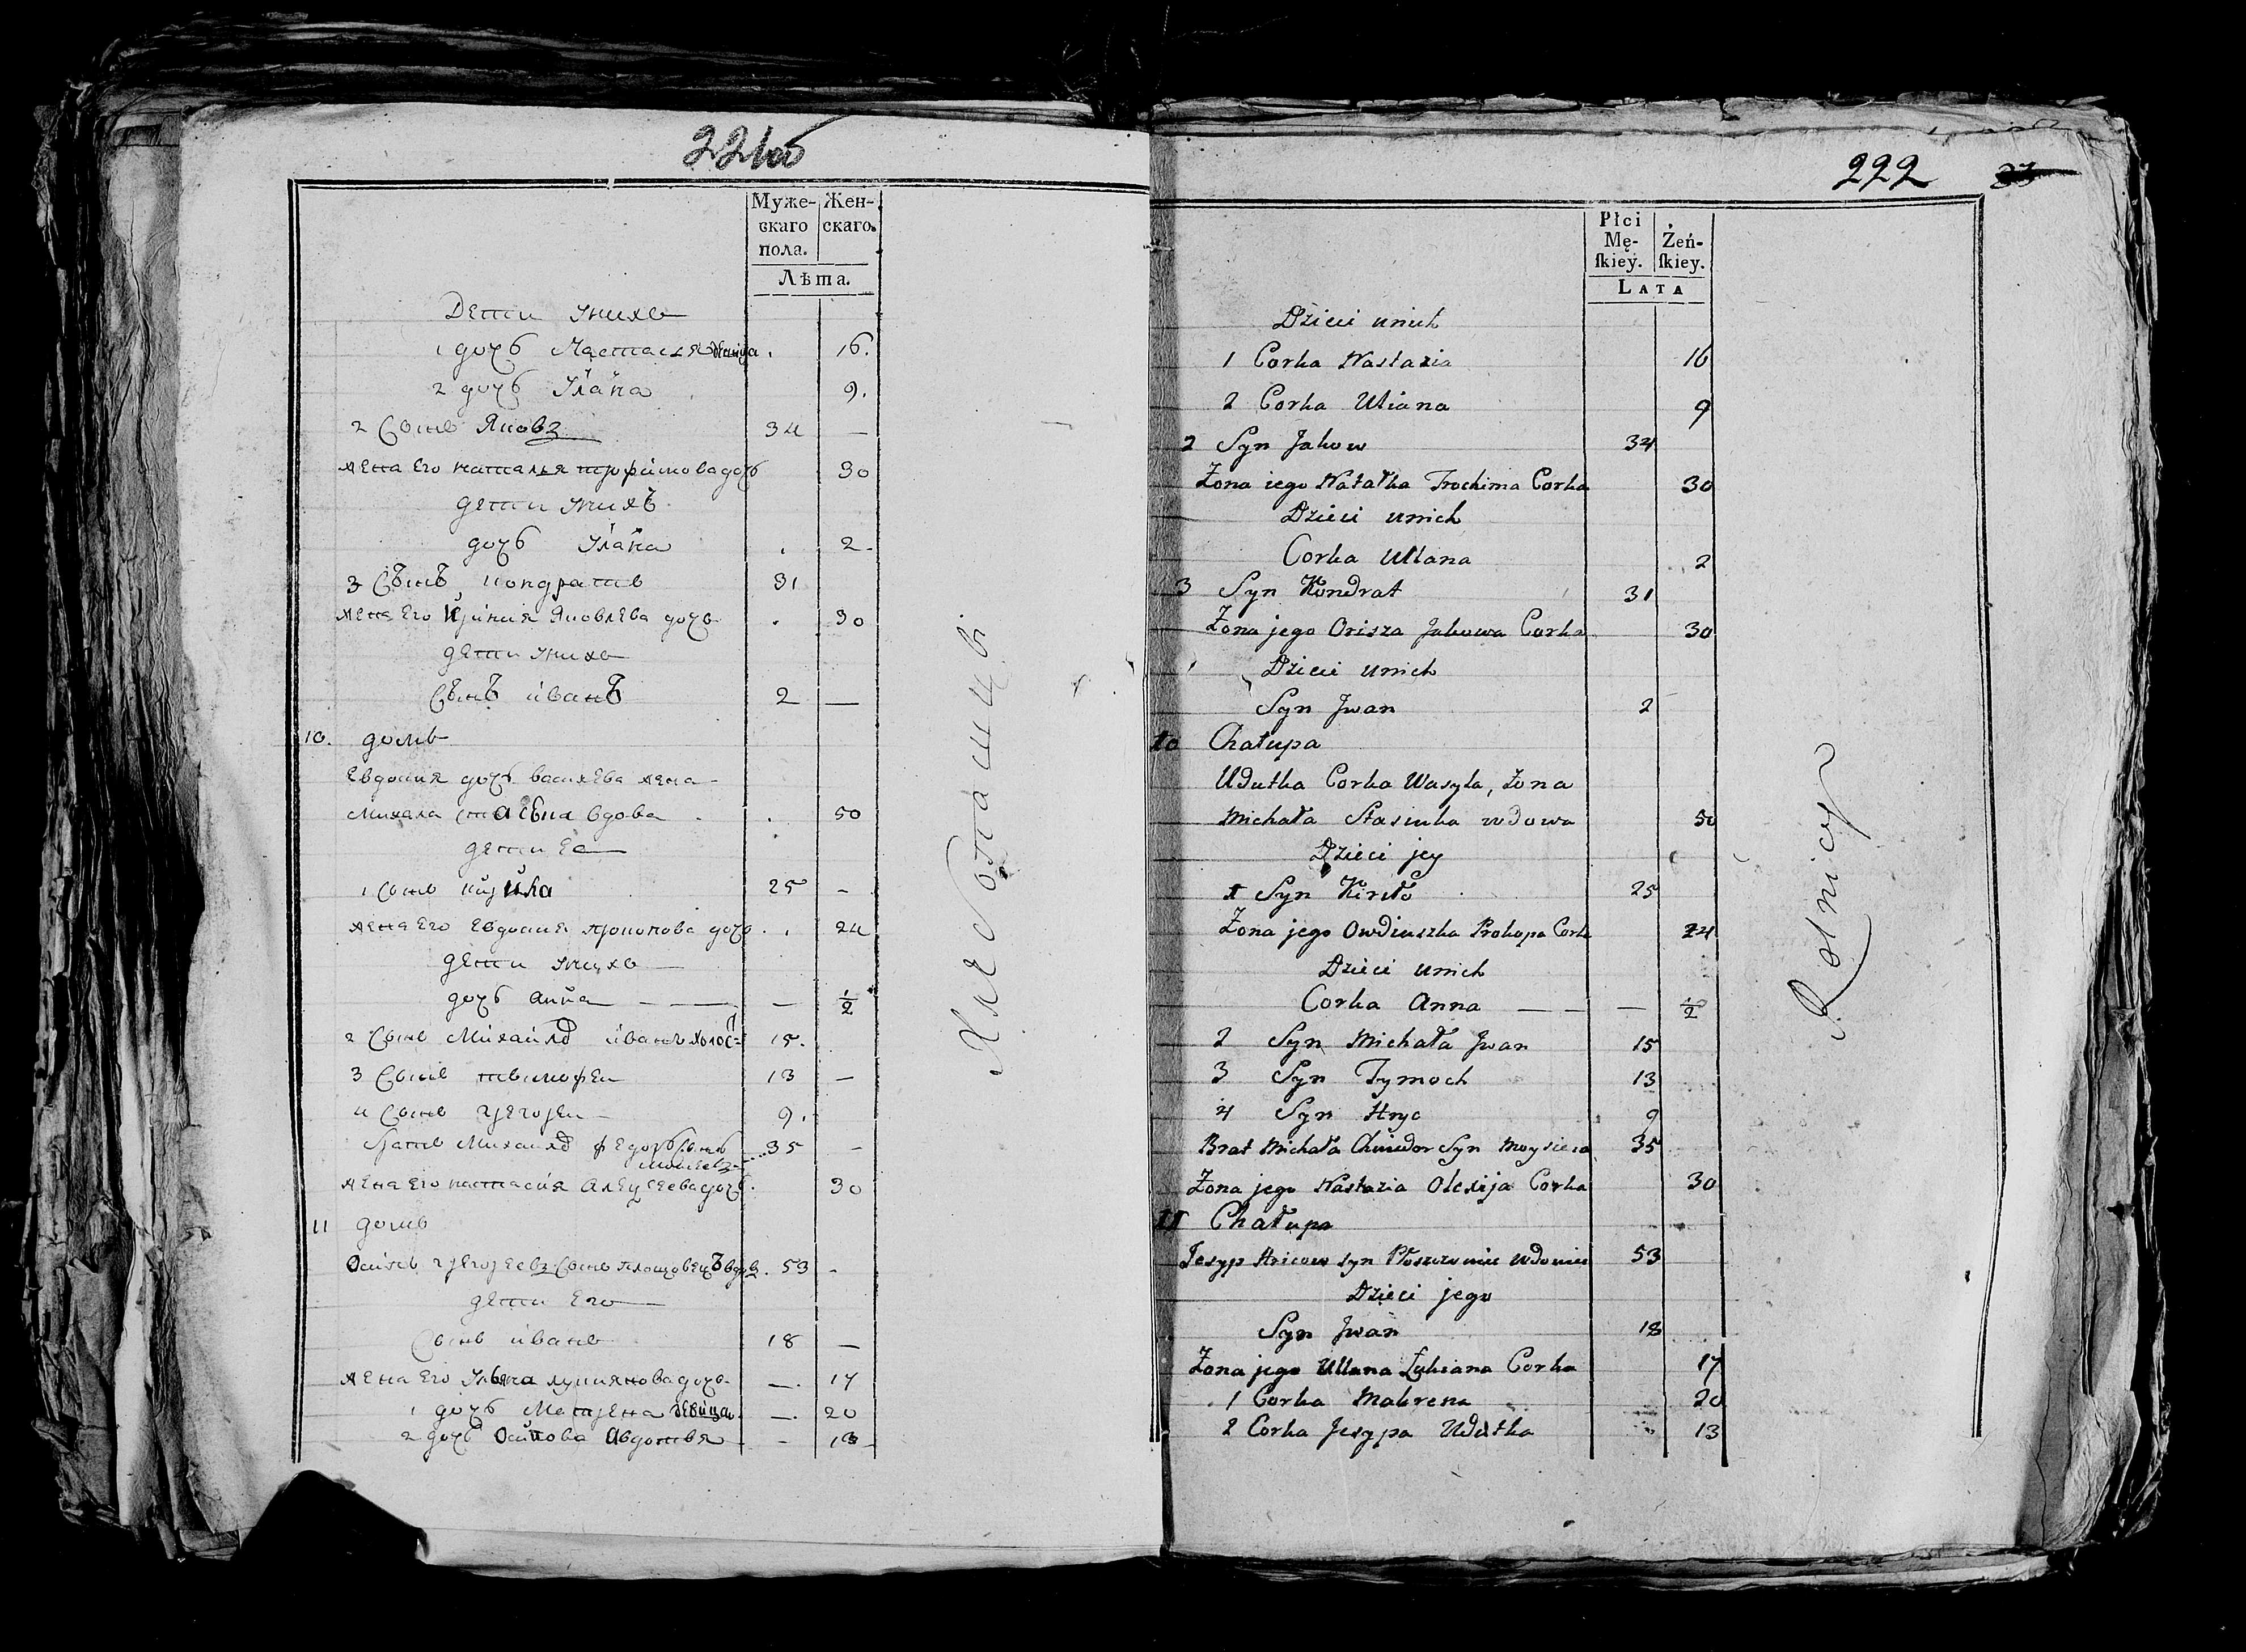 221об
Муже-
скаго
пола.
Жен-
скаго.
Лѣта.
Дети унихъ
1 дочь Настасья девица 16.
2 дочь Улāна 9.
2 Сынъ Яковъ 34 —
жена Его наталья трофимова дочь 30
дети унихъ
дочь Улāна 2
3 Сынъ кондратъ 31
жена Его Ириния Яковлева дочь 30
дети унихъ
Сынъ иванъ 2 —
10. домъ
Евдокия дочь василева жена
Михала вдова 50
дети Ее
1 Сынъ 25 —
жена Его Евдокия прокопова дочь 24
дети унихъ
дочь анна — — — 1/2
2 Сынъ Михайла иванъ холос 15.
3 Сынъ тимофеи 13 —
4 Сынъ грегореи 9.
братъ Михаила федоръ Сынъ 35 —
жена Его настасия алексеева дочь 30
11 домъ
Осипъ грегореевъ Сынъ 53 -
дети Его
Сынъ иванъ 18 —
жена Его Ульяна лукиянова дочь — 17
1 дочь Матрена девица — 20
2 дочь Осипова Авдотья - 13
Хлебопашцы
222 23
Płci
Mę-
ſkiey.
Żeń-
ſkiey.
LATA
Dzieci unich
1 Corka Nastazia 16
2 Corka Uliana 9
2 Syn Jakow 34
Żona iego Natałka Trochima Corka 30
Dzieci unich
Corka Ullana 2
3 Syn Kondrat 31
Żona jego Orisza Jakowa Corka 30
Dzieci unich
Syn Jwan 2
10 Chałupa
Udutka Corka Wasyla, Żona
Michała Stasiuka wdowa 50
Dzieci jey
1 Syn Kiryło 25
Żona jego Owdiuszka Prokopa Corka 24
Dzieci unich
Corka Anna — — — 1/2
2 Syn Michała Jwan 15
3 Syn Tymoch 13
4 Syn Hryc 9
Brat Michała Chwedor Syn Moysieia 35
Żona jego Nastazia Olexija Corka 30
11 Chałupa
Jesyp Hricow syn wdowiec 53
Dzieci jego
Syn Jwan 18
Żona jego Ullana Łukiana Corka 17
1 Corka Makrena 20
2 Corka Jesypa Udutka 13
Rolnicy